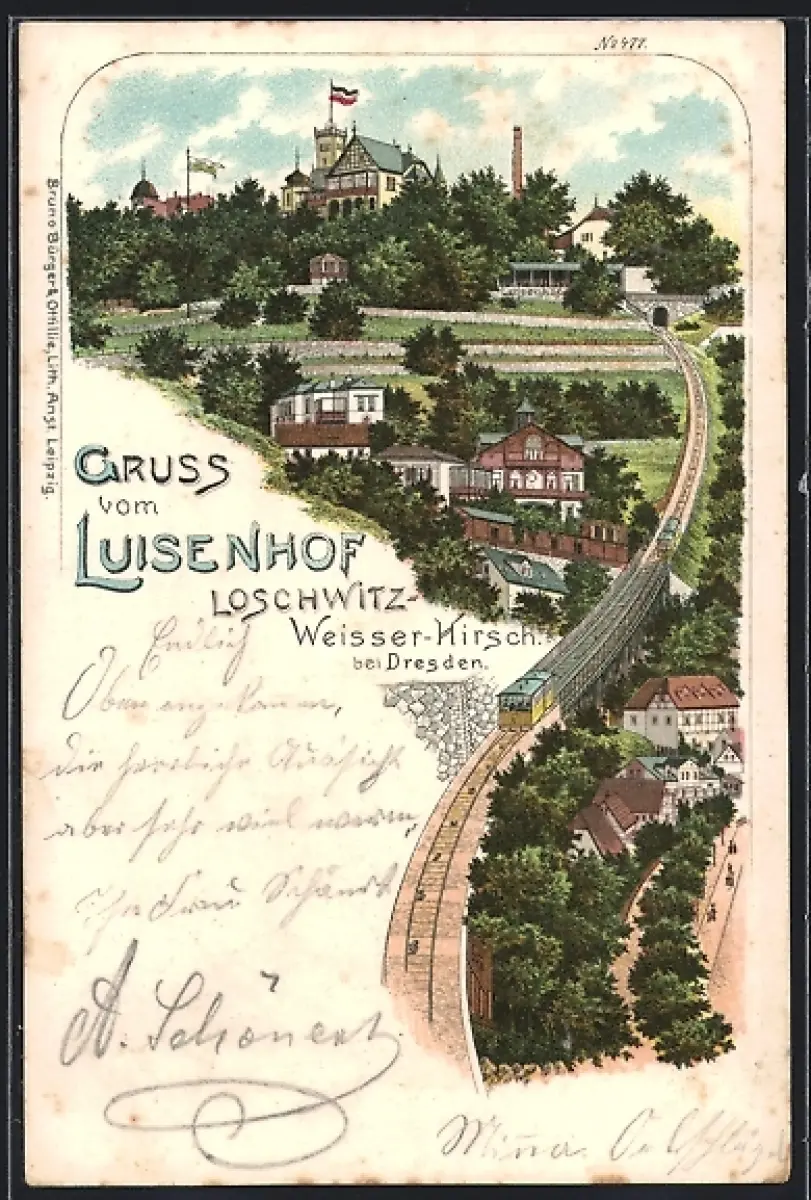 No 477.
Bruno Bürger & Ottillie, Lith. Anst. Leipzig.
GRUSS
vom
LUISENHOF
LOSCHWITZ-
Weisser-Hirsch.
bei Dresden.
Endlich
Oben angekommen,
die herrliche Aussicht
aber sehr viel warm,
Frau
A. Schönert
Minna